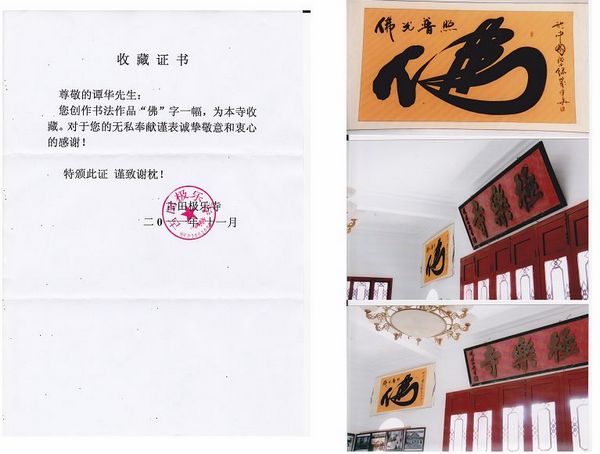 收藏证书
尊敬的谭华先生:
您创作书法作品“佛”字一幅，为本寺收
藏。对于您的无私奉献谨表诚挚敬意和衷心
的感谢！
特颁此证 谨致谢枕！
古田极乐寺
二0 年十一月
佛光普照
佛
極樂寺
佛
極樂寺
佛光普照
佛